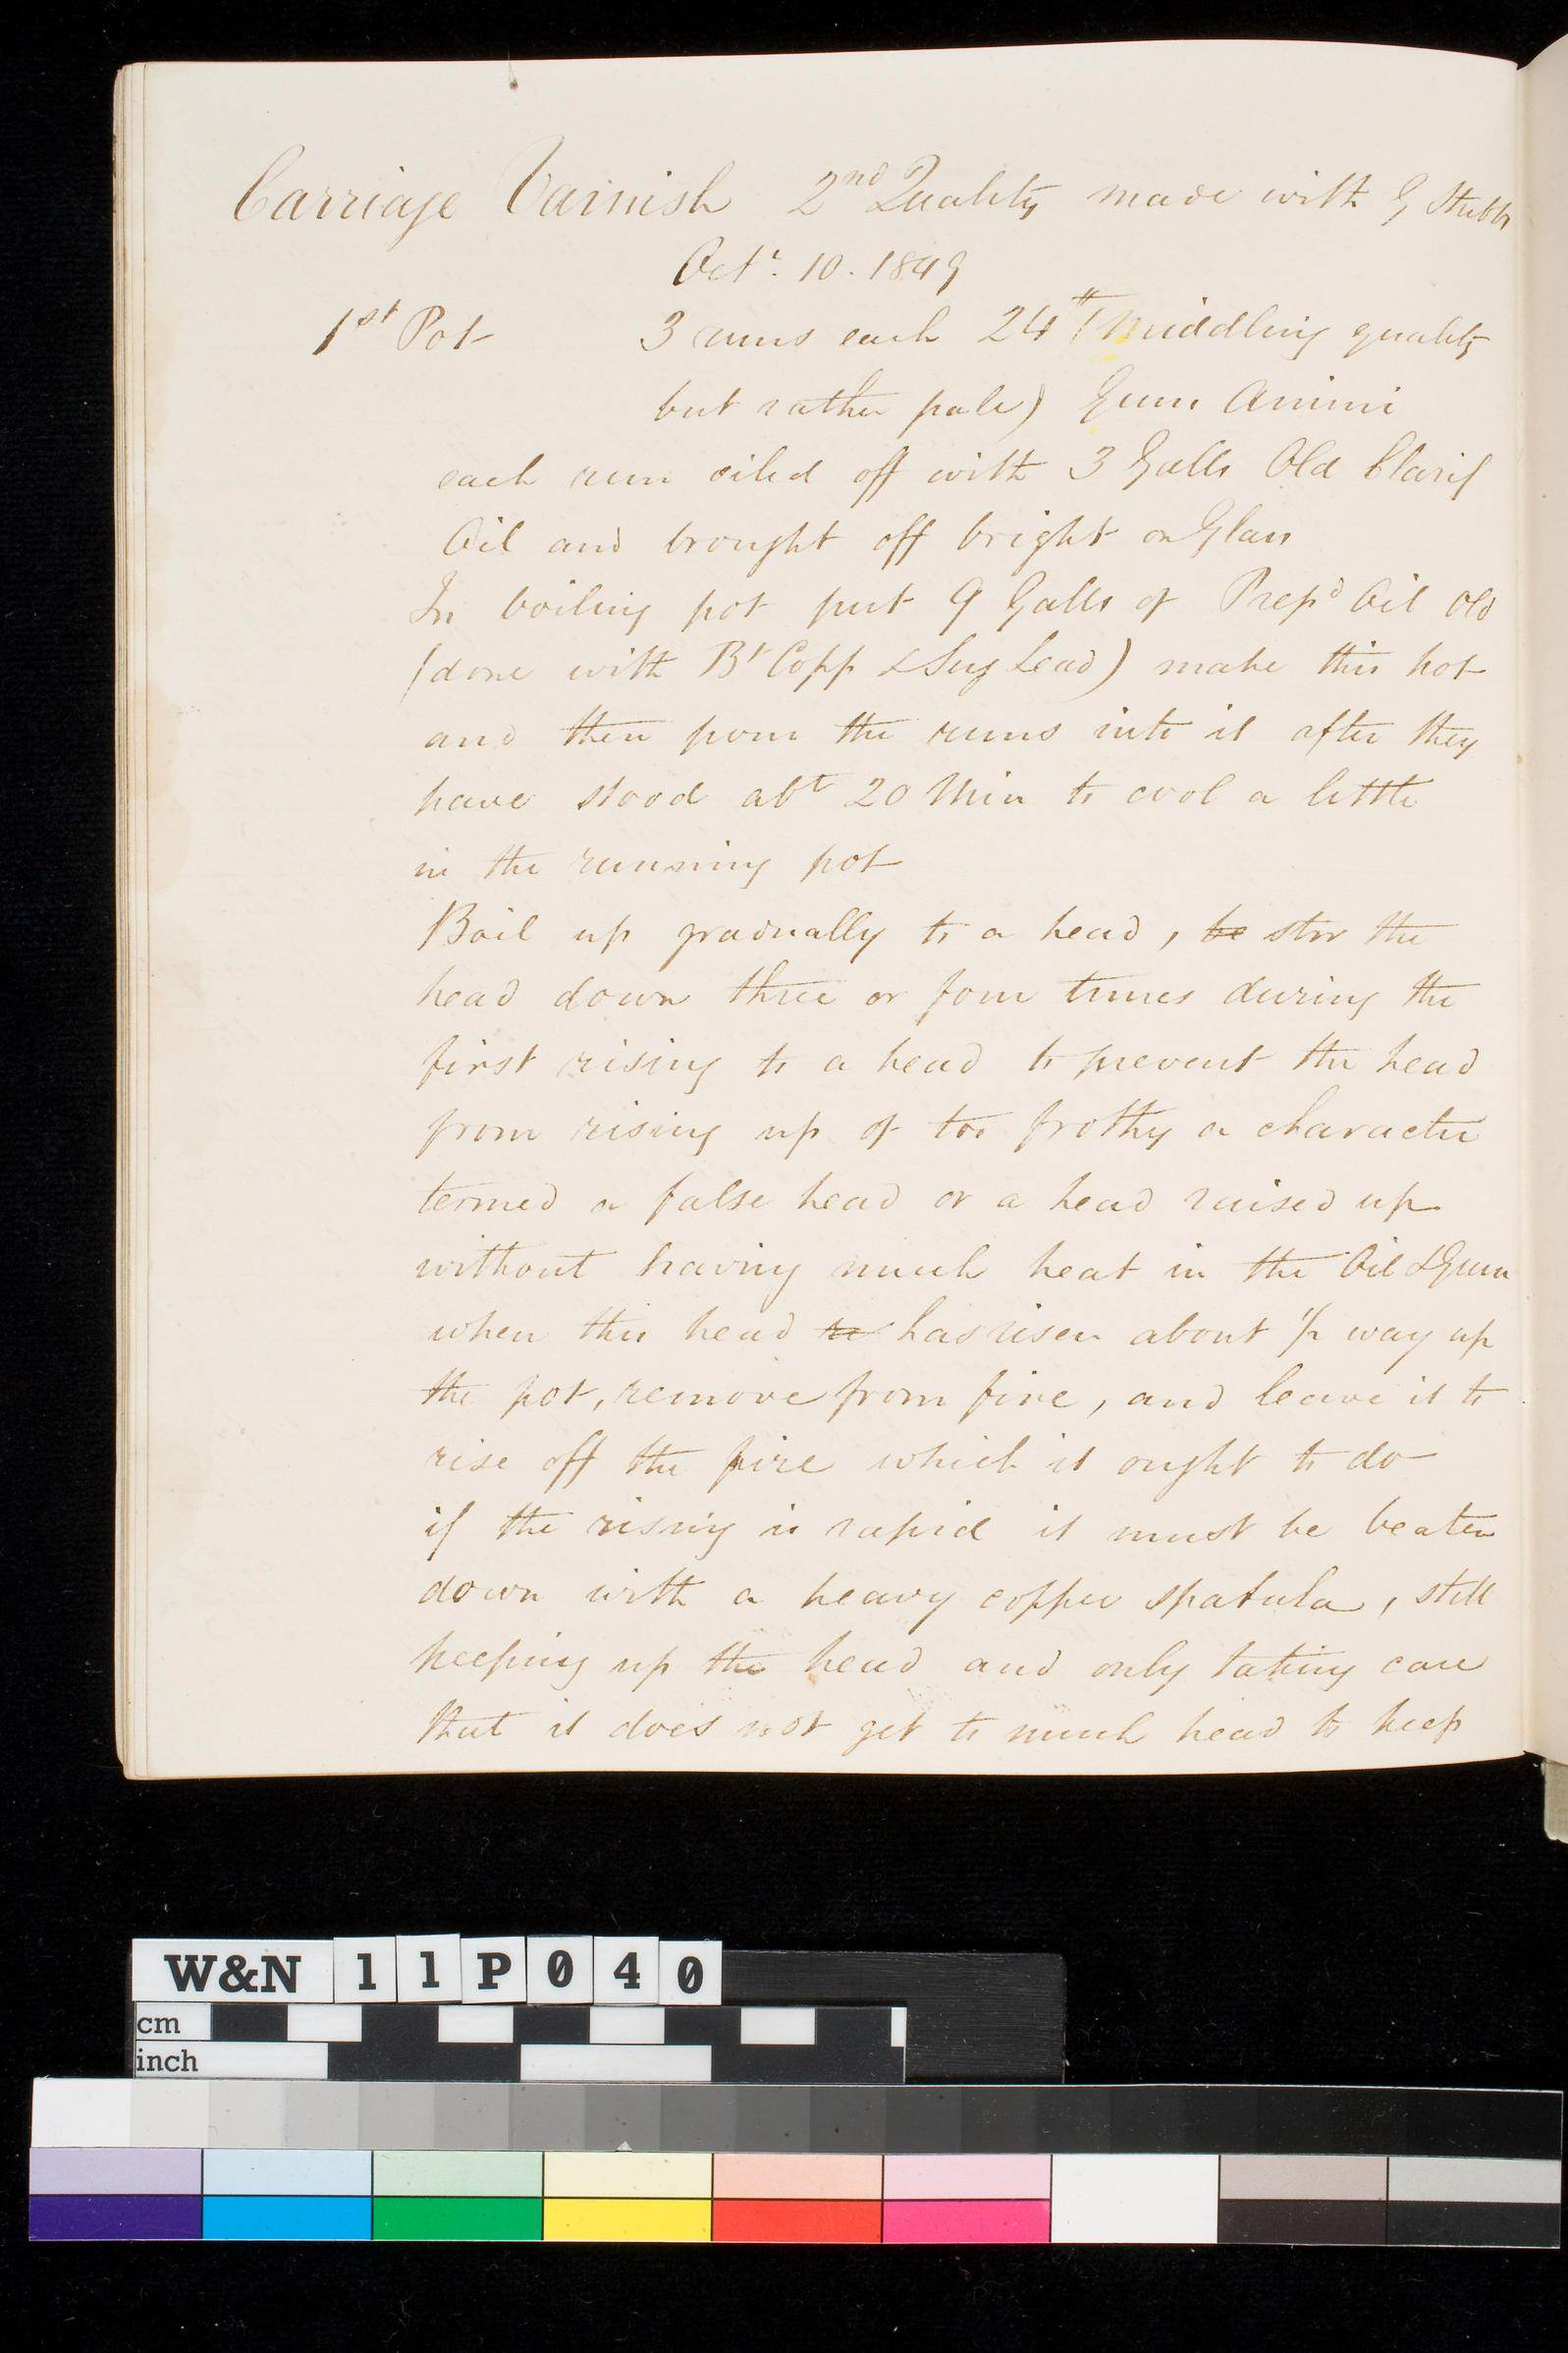 Carriage Varnish 2nd Quality made with G Stubbs
Octr. 10. 1849
1st Pot 3 runs each 24 # (middling quality
but rather pale) Gum Animi
each run oiled off with 3 Galls Old Clarif
Oil and brought off bright on Glass
In boiling pot put 9 Galls of Prepd Oil Old
(done with Bt Copp & Sug Lead) make this hot
and then pour the runs into it after they
have stood abt 20 Min to cool a little
in the running pot
Boil up gradually to a head, be stir the
head down three or four times during the
first rising to a head to prevent the head
from rising up of too frothy a character
termed a false head or a head raised up
without having much heat in the Oil & Gum
when this head has risen about 1/2 way up
the pot, remove from fire, and leave it to
rise off the fire which it ought to do
if the rising is rapid it must be beaten
down with a heavy copper spatula, still
keeping up the head and only taking care
that it does not get to much head to keep
W&N 11P040
cm
inch